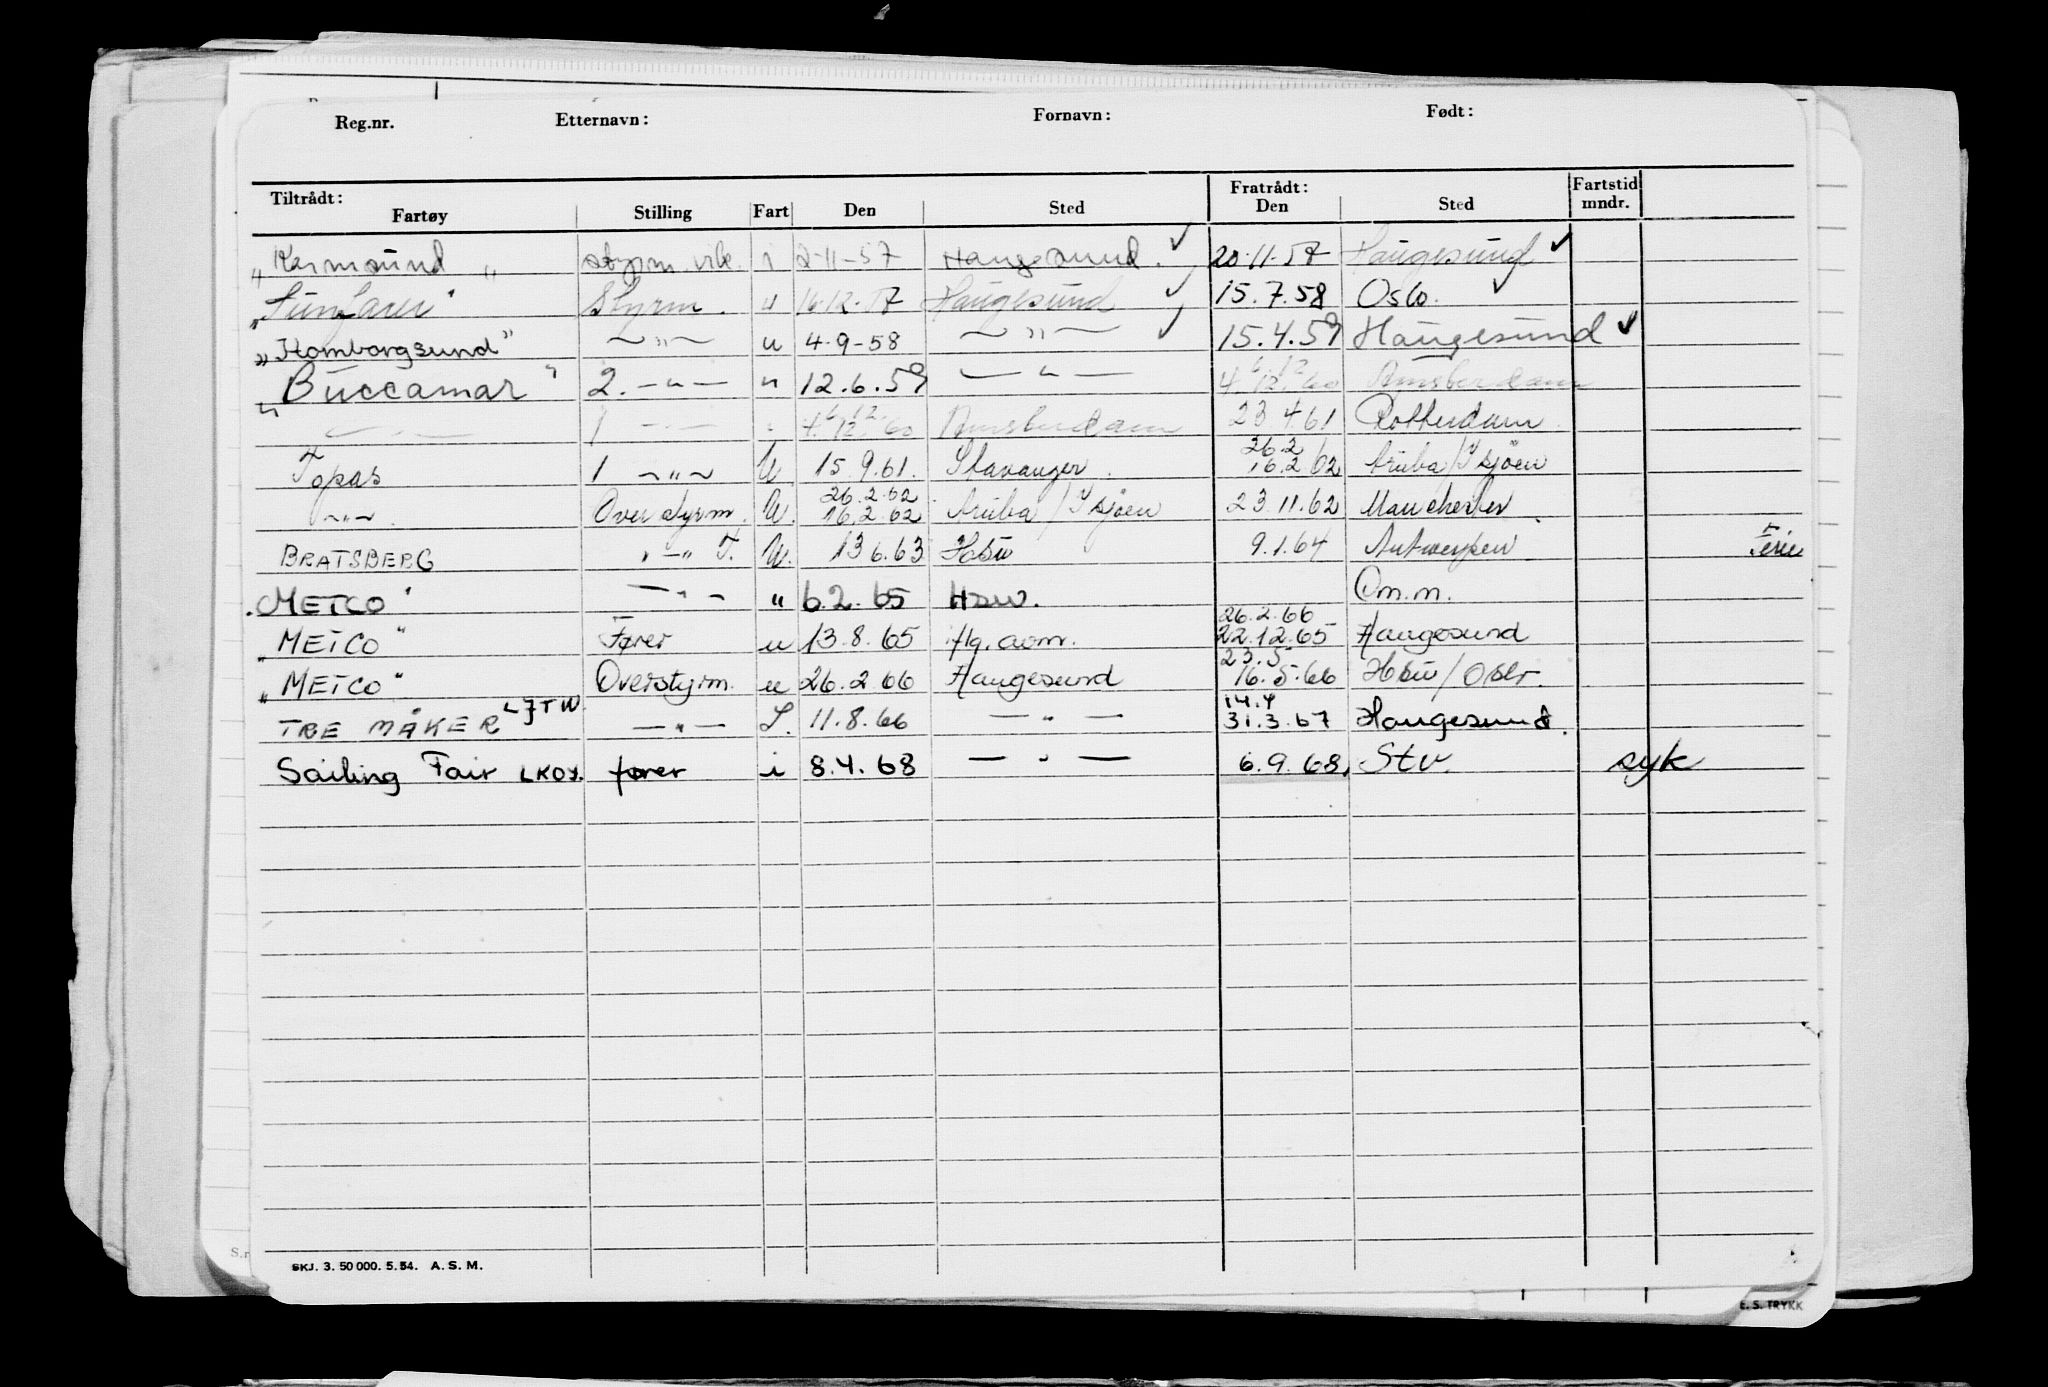 Reg.nr. Etternavn: Fornavn: Født:
Tiltrådt: Fratrådt: Fartstid
Fartøy Stilling Fart Den Sted Den Sted mndr.
"Karmsund" styrm. vik. i 2-11-57 Haugesund. ✓ 20.11.57 Haugesund ✓
"Sunfarer" Styrm. u 16.12.57 Haugesund ✓ 15.7.58 Oslo. ✓
"Homborgsund" — " — u 4-9-58 — " — ✓ 15.4.59 Haugesund ✓
"Buccamar" 2. — " — " 12.6.59 — " — 6.12 4.12.60 Amsterdam
— " — 1 — " — " 6.12. 4.12.60 Amsterdam 23.4.61 Rotterdam
Topas 1 — " — U 15.9.61. Stavanger. 26.2 16.2.62 Aruba/I sjøen
— " — Overstyrm. U. 26.2.62 16.2.62 Aruba/I sjøen 23.11.62 Manchester.
BRATSBERG " — " T. U. 13.6.63 Hsu 9.1.64 Antwerpen Ferie
"METCO" — " — " 6.2.65 Hsu. Om.m.
"METCO" Fører u 13.8.65 Hg. aom. 26.2.66 22.12.65 Haugesund
"METCO" Overstyrm. u 26.2.66 Haugesund 23.5 16.5.66 Hsu/
TRE MÅKER LJTW — " — S. 11.8.66 — " — 14.4 31.3.67 Haugesund.
Sailing Fair LKOY. fører i 8.4.68 — " — 6.9.68. Stv. syk
SKJ. 3. 50 000. 5. 54. A. S. M.
E. S. TRYKK